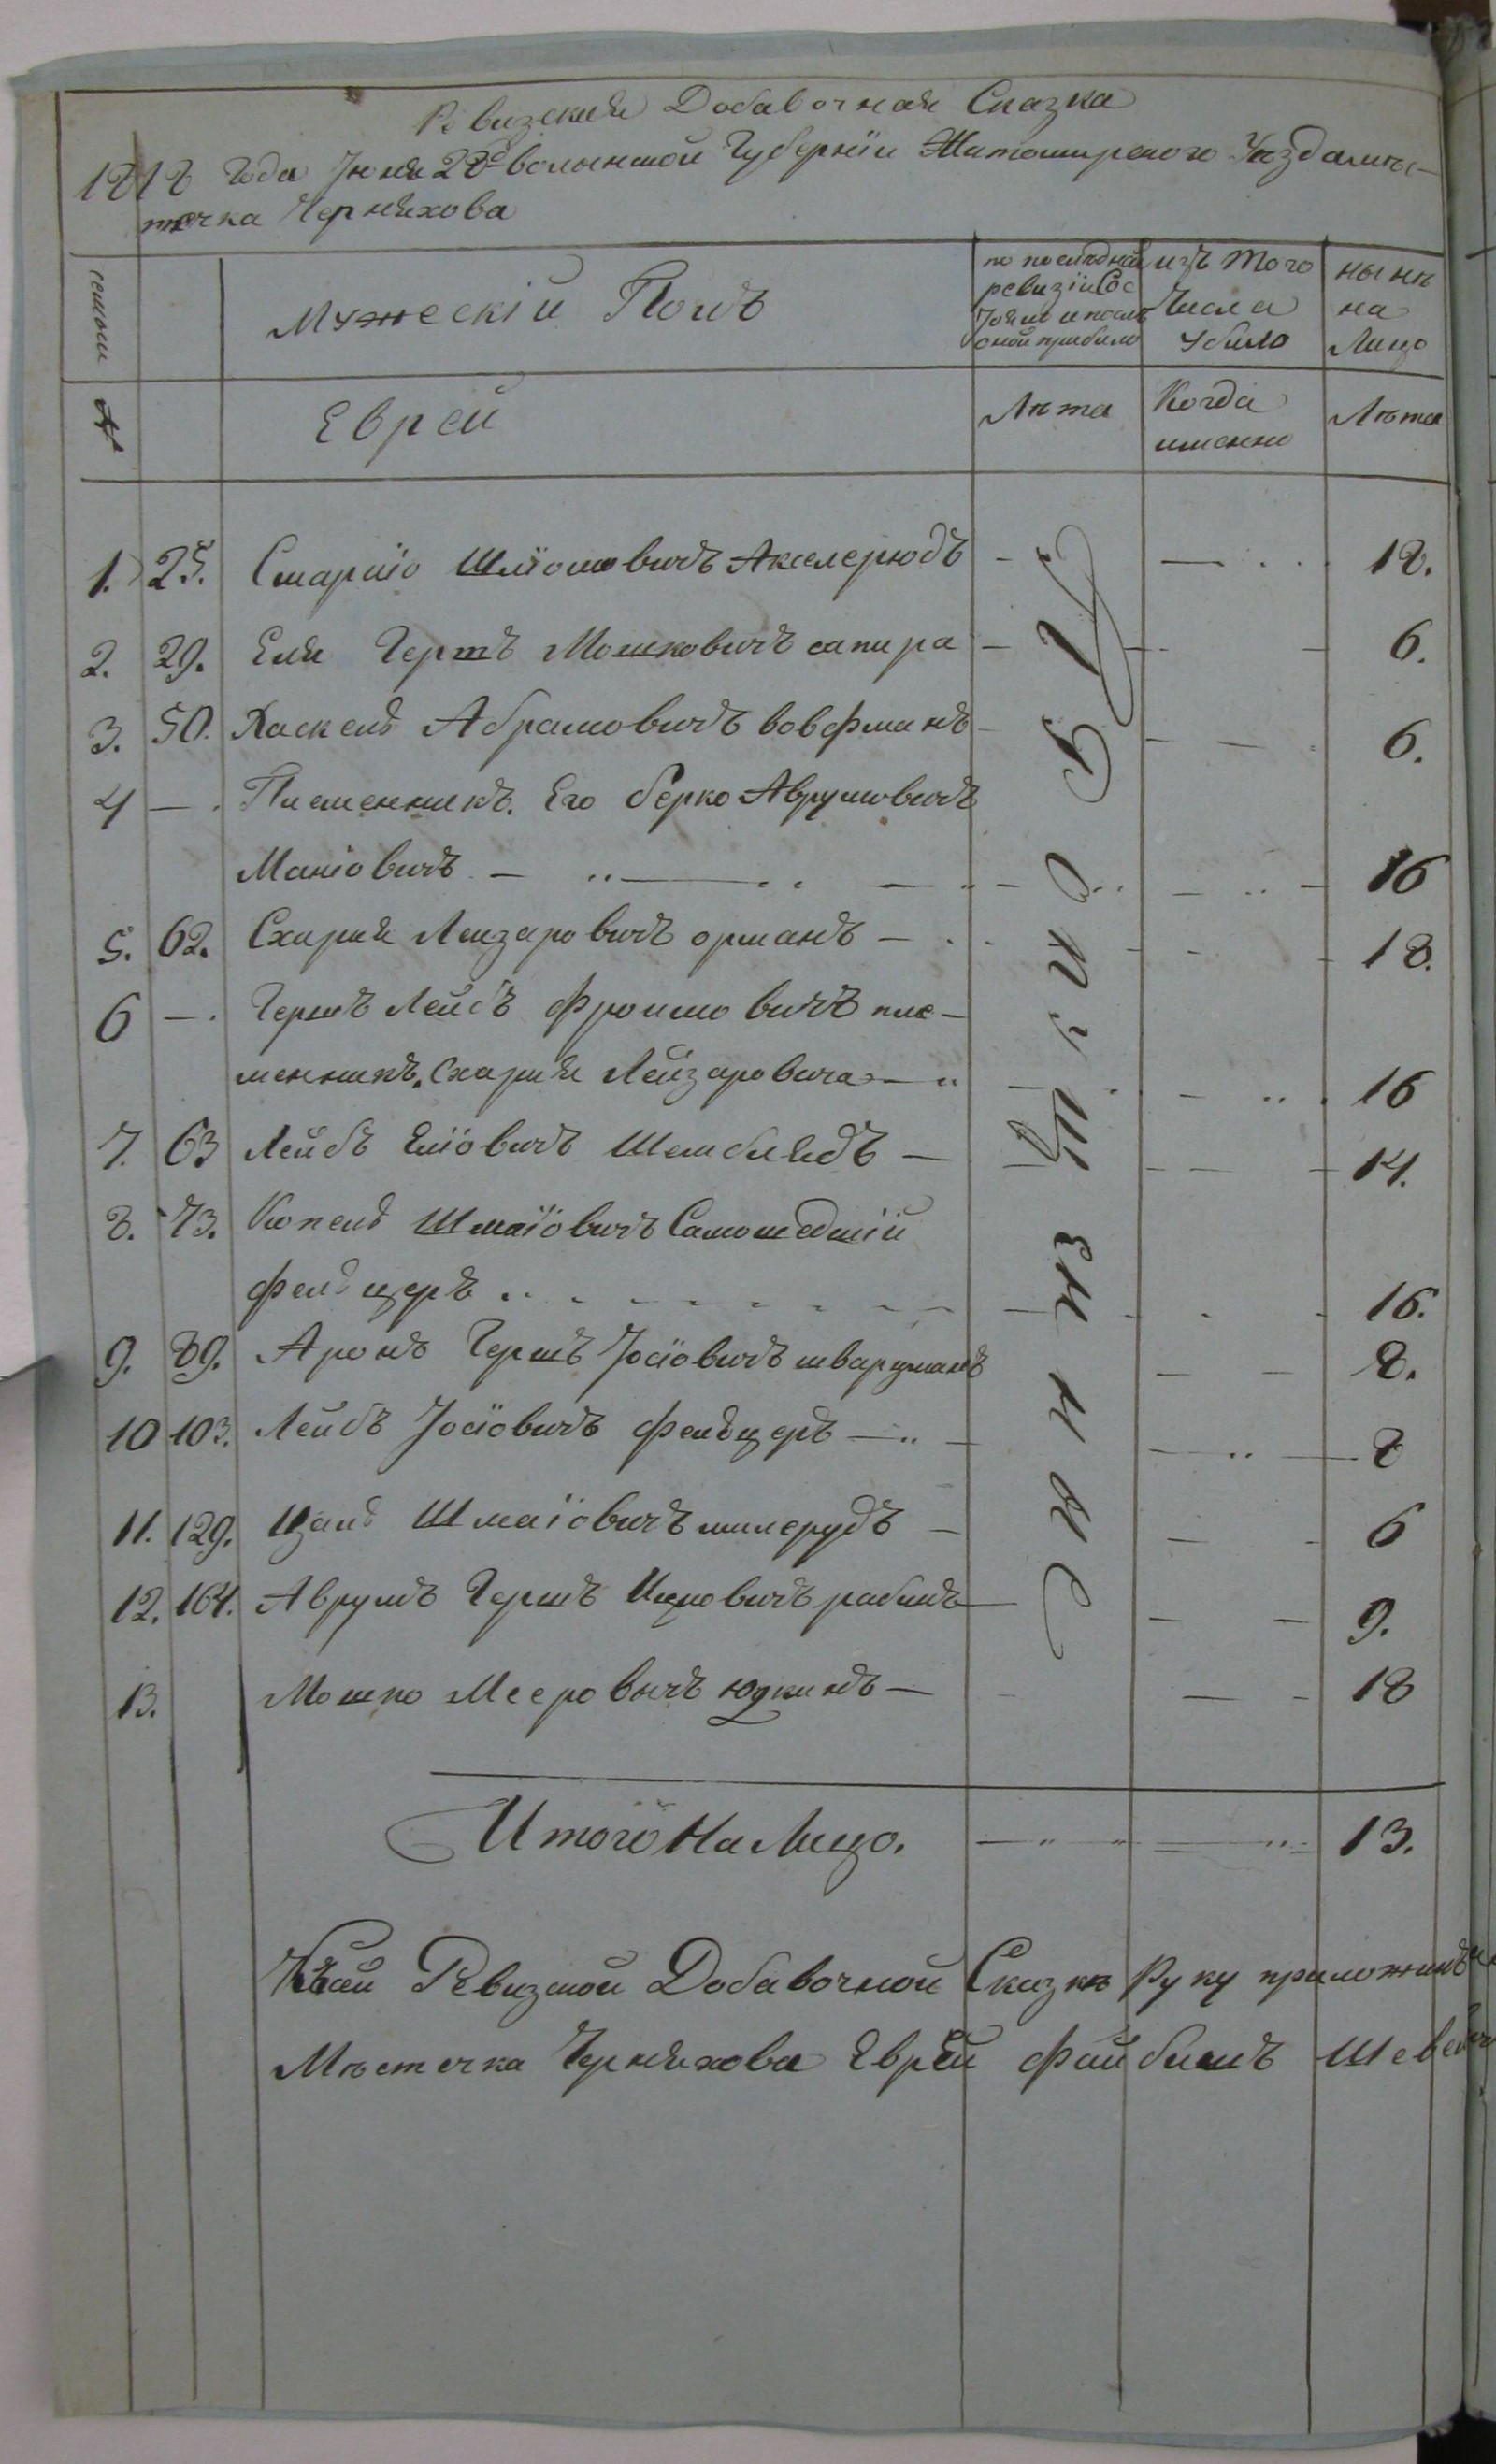 Ревизская Добавочная Сказка
1818 Года Июня 22е волынской Губернїи Житомирского Уезда мѣс-
течка Черняхова
семьи
Мужескїй Полъ
по последней
ревизїи Сос
тояло и после
оной прибыло
изъ того
Числа
Убыло
нынѣ
на
Лицо
№
Еврей
Лѣта
Когда
именно
Лѣта
1. 25. Шлїомовичъ Акселерюдъ - 18.
2. 29. Еля Гершъ Мошковичъ сапира - 6.
3. 50. Хаскель Абрамовичъ вовфманъ - 6.
4 - Племенникъ Его берко Аврумовичъ
Манїовичъ - 16
5. 62. Схария Лейзаровичъ орманъ - 18.
6 - Гершъ Лейбъ Фроимовичъ пле-
менникъ Схария Лейзаровича - 16
7. 63 Лейбъ Елїовичъ - 14.
8. 73. Копель Шмаїовичъ Самошедшїй
фельцеръ - 16.
9. 89. Аронъ Гершъ Иосїовичъ шварцманъ 8.
10 103. Лейбъ Иосїовичъ Фельцеръ - 8
11. 129. Шмаїовичъ милерудъ - 6
12. 164. Аврумъ Гершъ Ицковичъ рабинъ - 9.
13. Мошко Мееровичъ юдкинъ - 18
Итого На Лицо. 13.
Ревизкой Добавочной Сказкѣ Руку приложилъ
Мѣстечка Черняхова Еврей Файбишъ